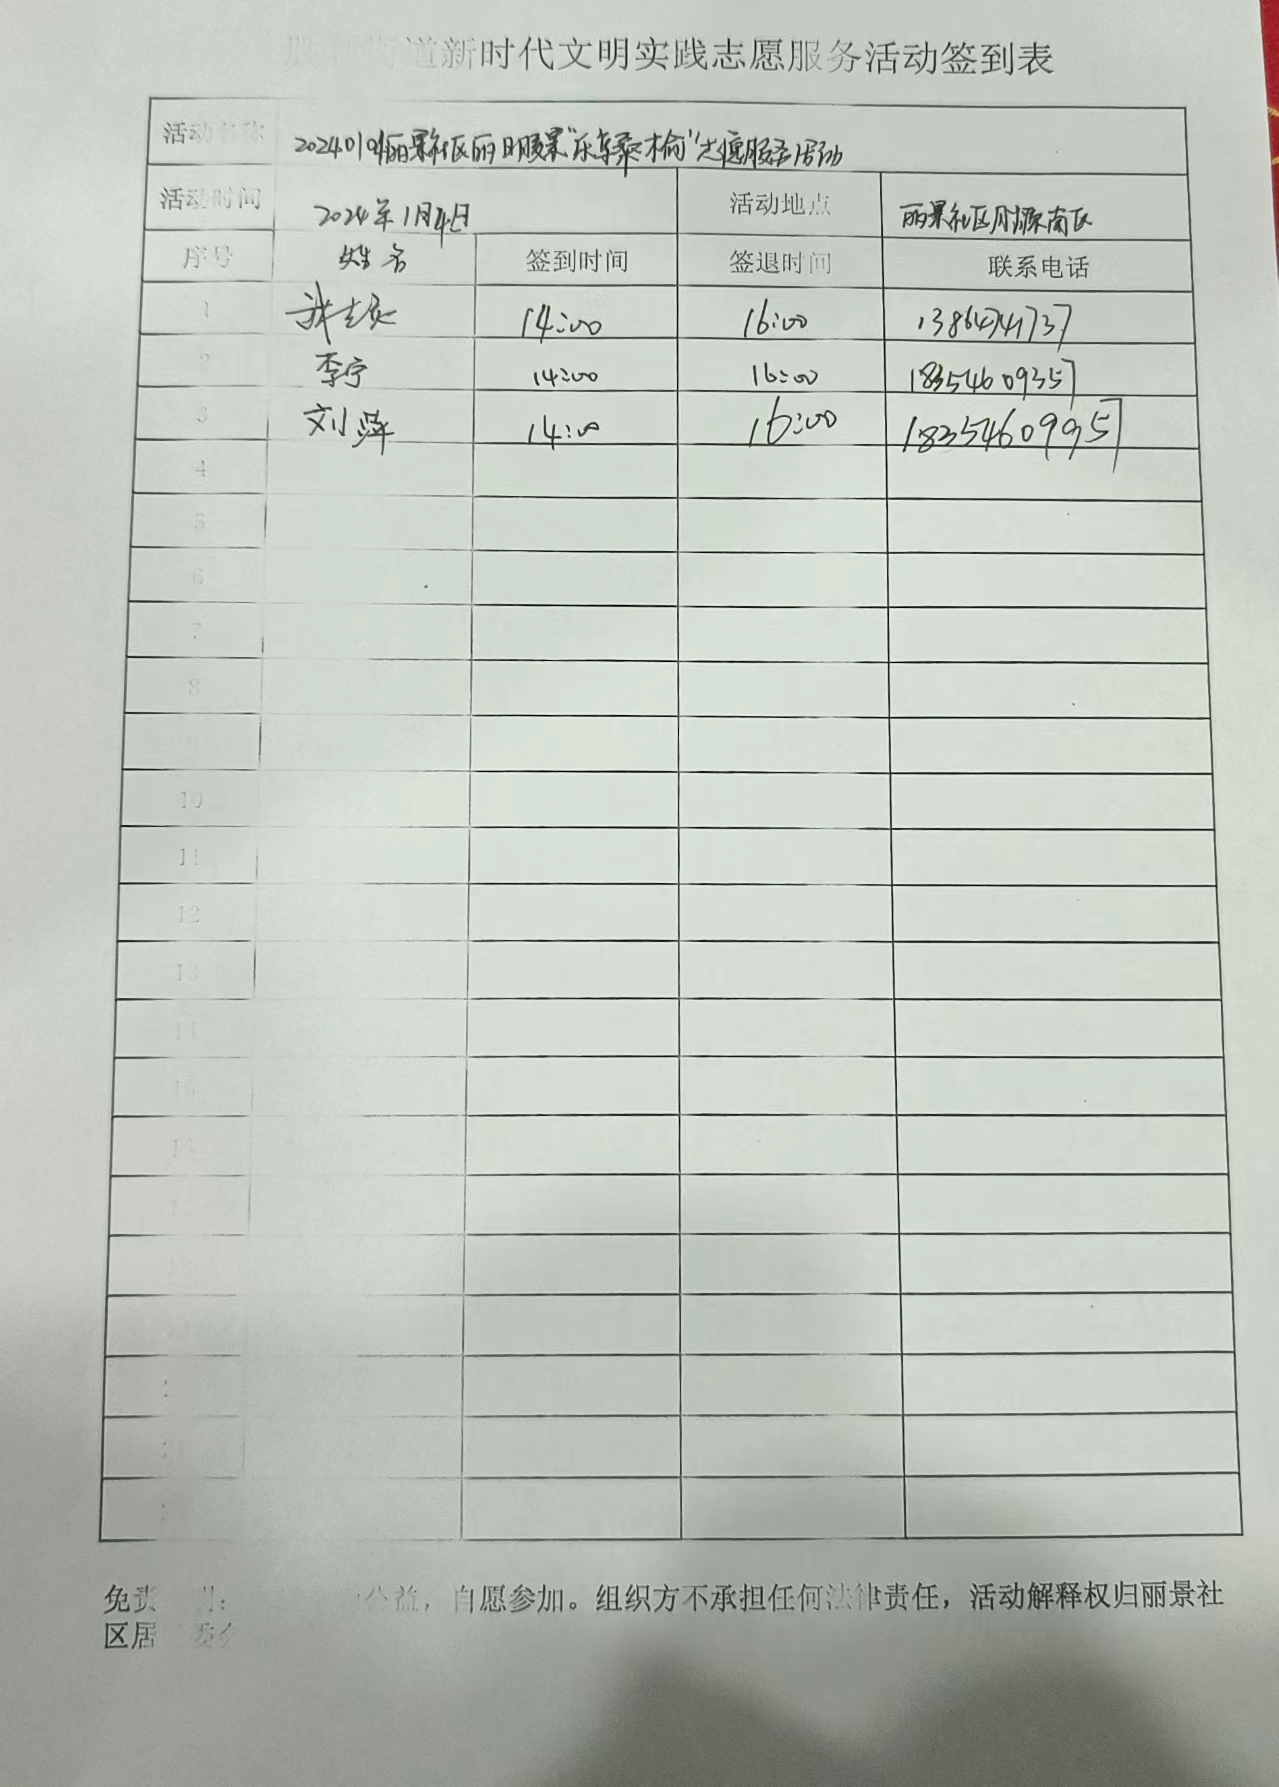 道新时代文明实践志愿服务活动签到表
活动名称 20240104丽景社区丽日暖景“乐享桑榆”志愿服务活动
活动时间 2024年1月4日 活动地点 丽景社区胜源南区
序号 姓名 签到时间 签退时间 联系电话
1 14:00 16:00
2 李宁 14:00 16:00 18354609357
3 刘萍 14:00 16:00 18354609957
4
5
6
7
8
9
10
11
12
13
免责 明: 公益，自愿参加。组织方不承担任何法律责任，活动解释权归丽景社
区居 委